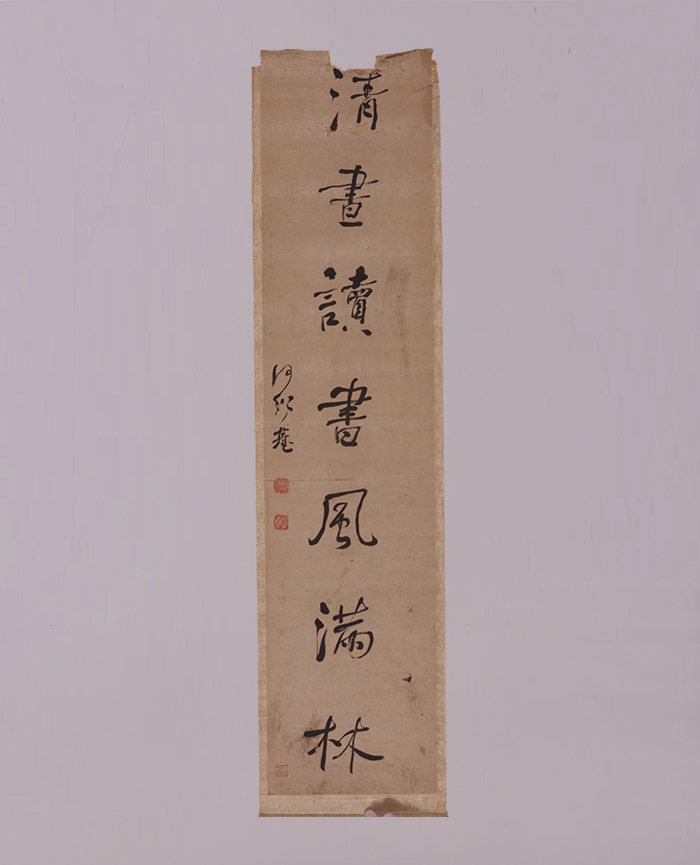 清晝讀書風滿林
何紹基